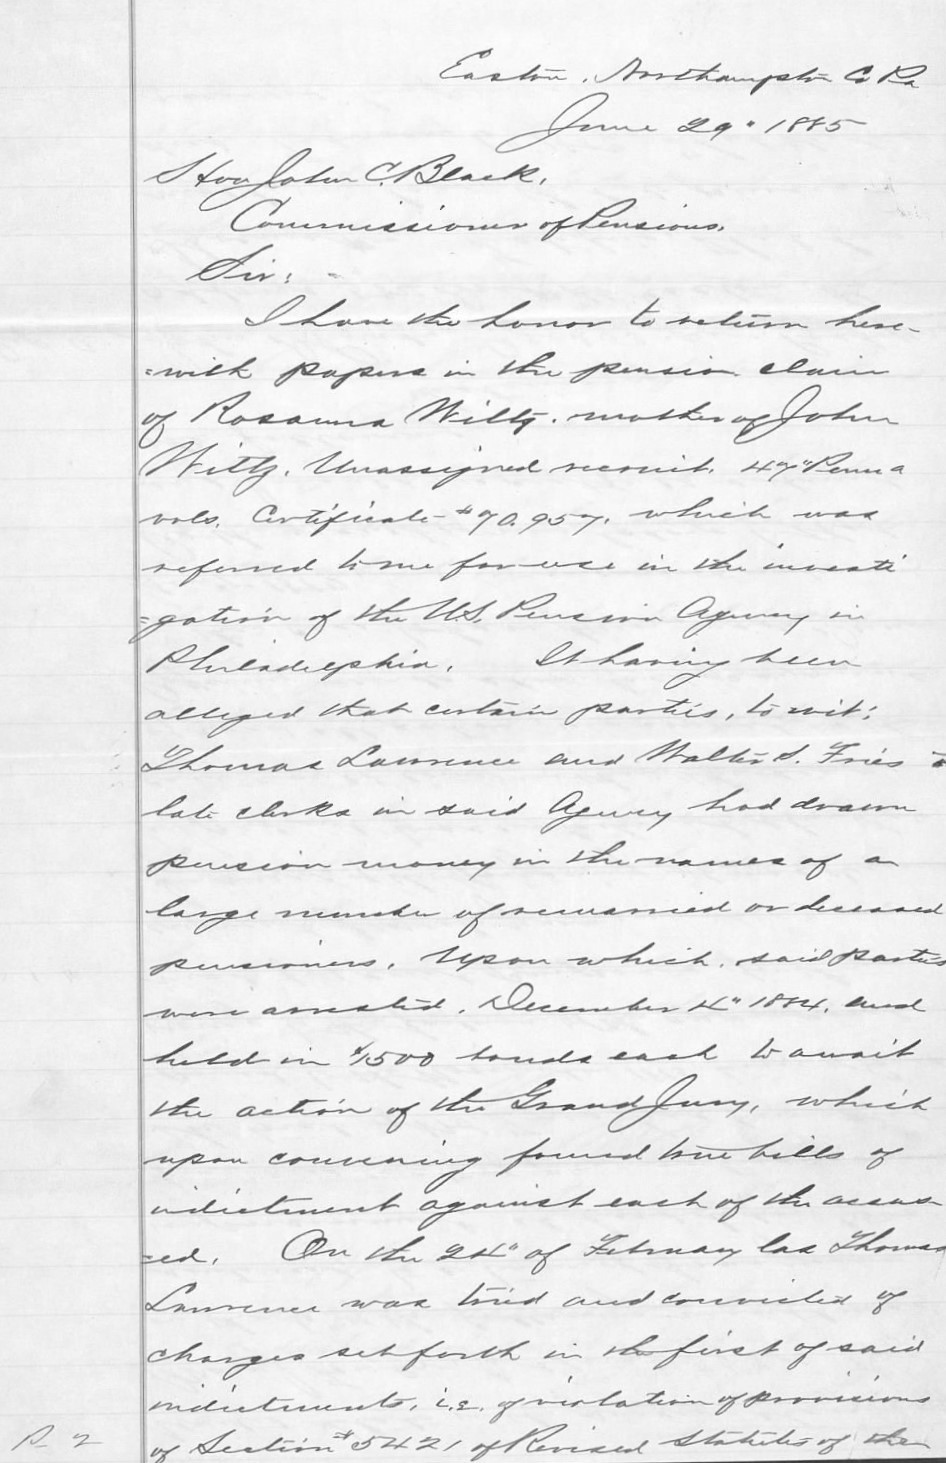 Easton, Northampton Co Pa
June 29" 1885
Hon John C. Black,
Commissioner of Pensions.
Sir:
I have the honor to return here-
=with papers in the pension claim
of Rosanna Wiltz. mother of John
Wiltz. Unassigned recruit. 47" Penna
vols. Certificate #70.957. which was
referred to me for use in the investi
=gation of the U.S. Pension Agency in
Philadelphia. It having been
alleged that certain parties, to wit:
Thomas Lawrence and Walter S. Fries
late clerks in said Agency had drawn
pension money in the names of a
large number of remarried or deceased
pensioners. Upon which. said parties
were arrested. December 4" 1884. and
held in $1500 bonds each to await
the action of the Grand Jury, which
upon convening found true bills of
indictment against each of the accus-
=ed. On the 24" of February las Thomas
Lawrence was tried and convicted of
charges set forth in the first of said
indictments. i.e. of violation of provisions
of Section #5421 of Revised Statutes of the
P. 2